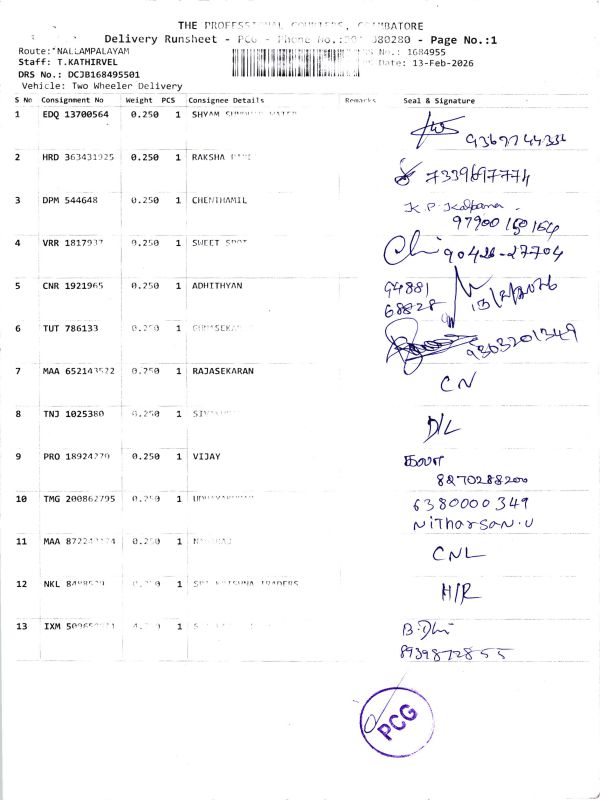 THE PROFESSIONAL COURIERS, COIMBATORE
Delivery Runsheet - PCG - Phone No.: 80280 - Page No.:1
Route: NALLAMPALAYAM No.: 1684955
Staff: T.KATHIRVEL Date: 13-Feb-2026
DRS No.: DCJB168495501
Vehicle: Two Wheeler Delivery
S No Consignment No Weight PCS Consignee Details Remarks Seal & Signature
1 EDQ 13700564 0.250 1 SHYAM
2 HRD 363431925 0.250 1 RAKSHA
7339697774
3 DPM 544648 0.250 1 CHENTHAMIL K.P. Kalpana
97900 160164
4 VRR 1817937 0.250 1 SWEET SPOT
90426-27704
5 CNR 1921965 0.250 1 ADHITHYAN 94881
68828 13/2/2026
6 TUT 786133 0.250 1
9363201349
7 MAA 652143522 0.250 1 RAJASEKARAN CN
8 TNJ 1025380 0.250 1 D/L
9 PRO 18924270 0.250 1 VIJAY
8270288200
10 TMG 200862795 0.250 1 6380000349
Nitharsan.U
11 MAA 0.250 1 CNL
12 NKL 1 SRI KRISHNA TRADERS H/R
13 IXM 1 B.Dhi
8939872855
PCG